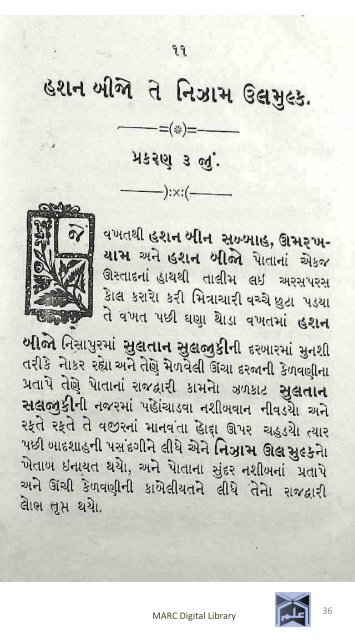 ૧૧
હશન બીજો તે નિઝામ ઉલમુલ્ક.
પ્રકરણ ૩ જું.
જે વખતથી હશન બીન સબ્બાહ, ઊમરખ-
યામ અને હશન બીજો પોતાનાં એકજ
ઊસ્તાદનાં હાથથી તાલીમ લઇ અરસપરસ
કોલ કરારો કરી મિત્રાચારી વચ્ચે છુટા પડયા
તે વખત પછી ઘણા થોડા વખતમાં હશન
બીજો નિસાપુરમાં સુલતાન સુલજુકીની દરબારમાં મુનશી
તરીકે નોકર રહ્યો અને તેણે મેળવેલી ઊંચા દરજાની કેળવણીના
પ્રતાપે તેણે પોતાનાં રાજદ્વારી કામનો ઝળકાટ સુલતાન
સલજુકીની નજરમાં પહોંચાડવા નશીબવાન નીવડયો અને
રફતે રફતે તે વજીરનાં માનવંતા હોદ્દા ઊપર ચહડયો ત્યાર
પછી બાદશાહની પસંદગીને લીધે એને નિઝામ ઊલ મુલ્કનો
ખેતાબ ઇનાયત થયો, અને પોતાના સુંદર નશીબનાં પ્રતાપે
અને ઊંચી કેળવણીની કાબેલીયતને લીધે તેનો રાજદ્વારી
લોભ તૃપ્ત થયો.
MARC Digital Library
علم
36